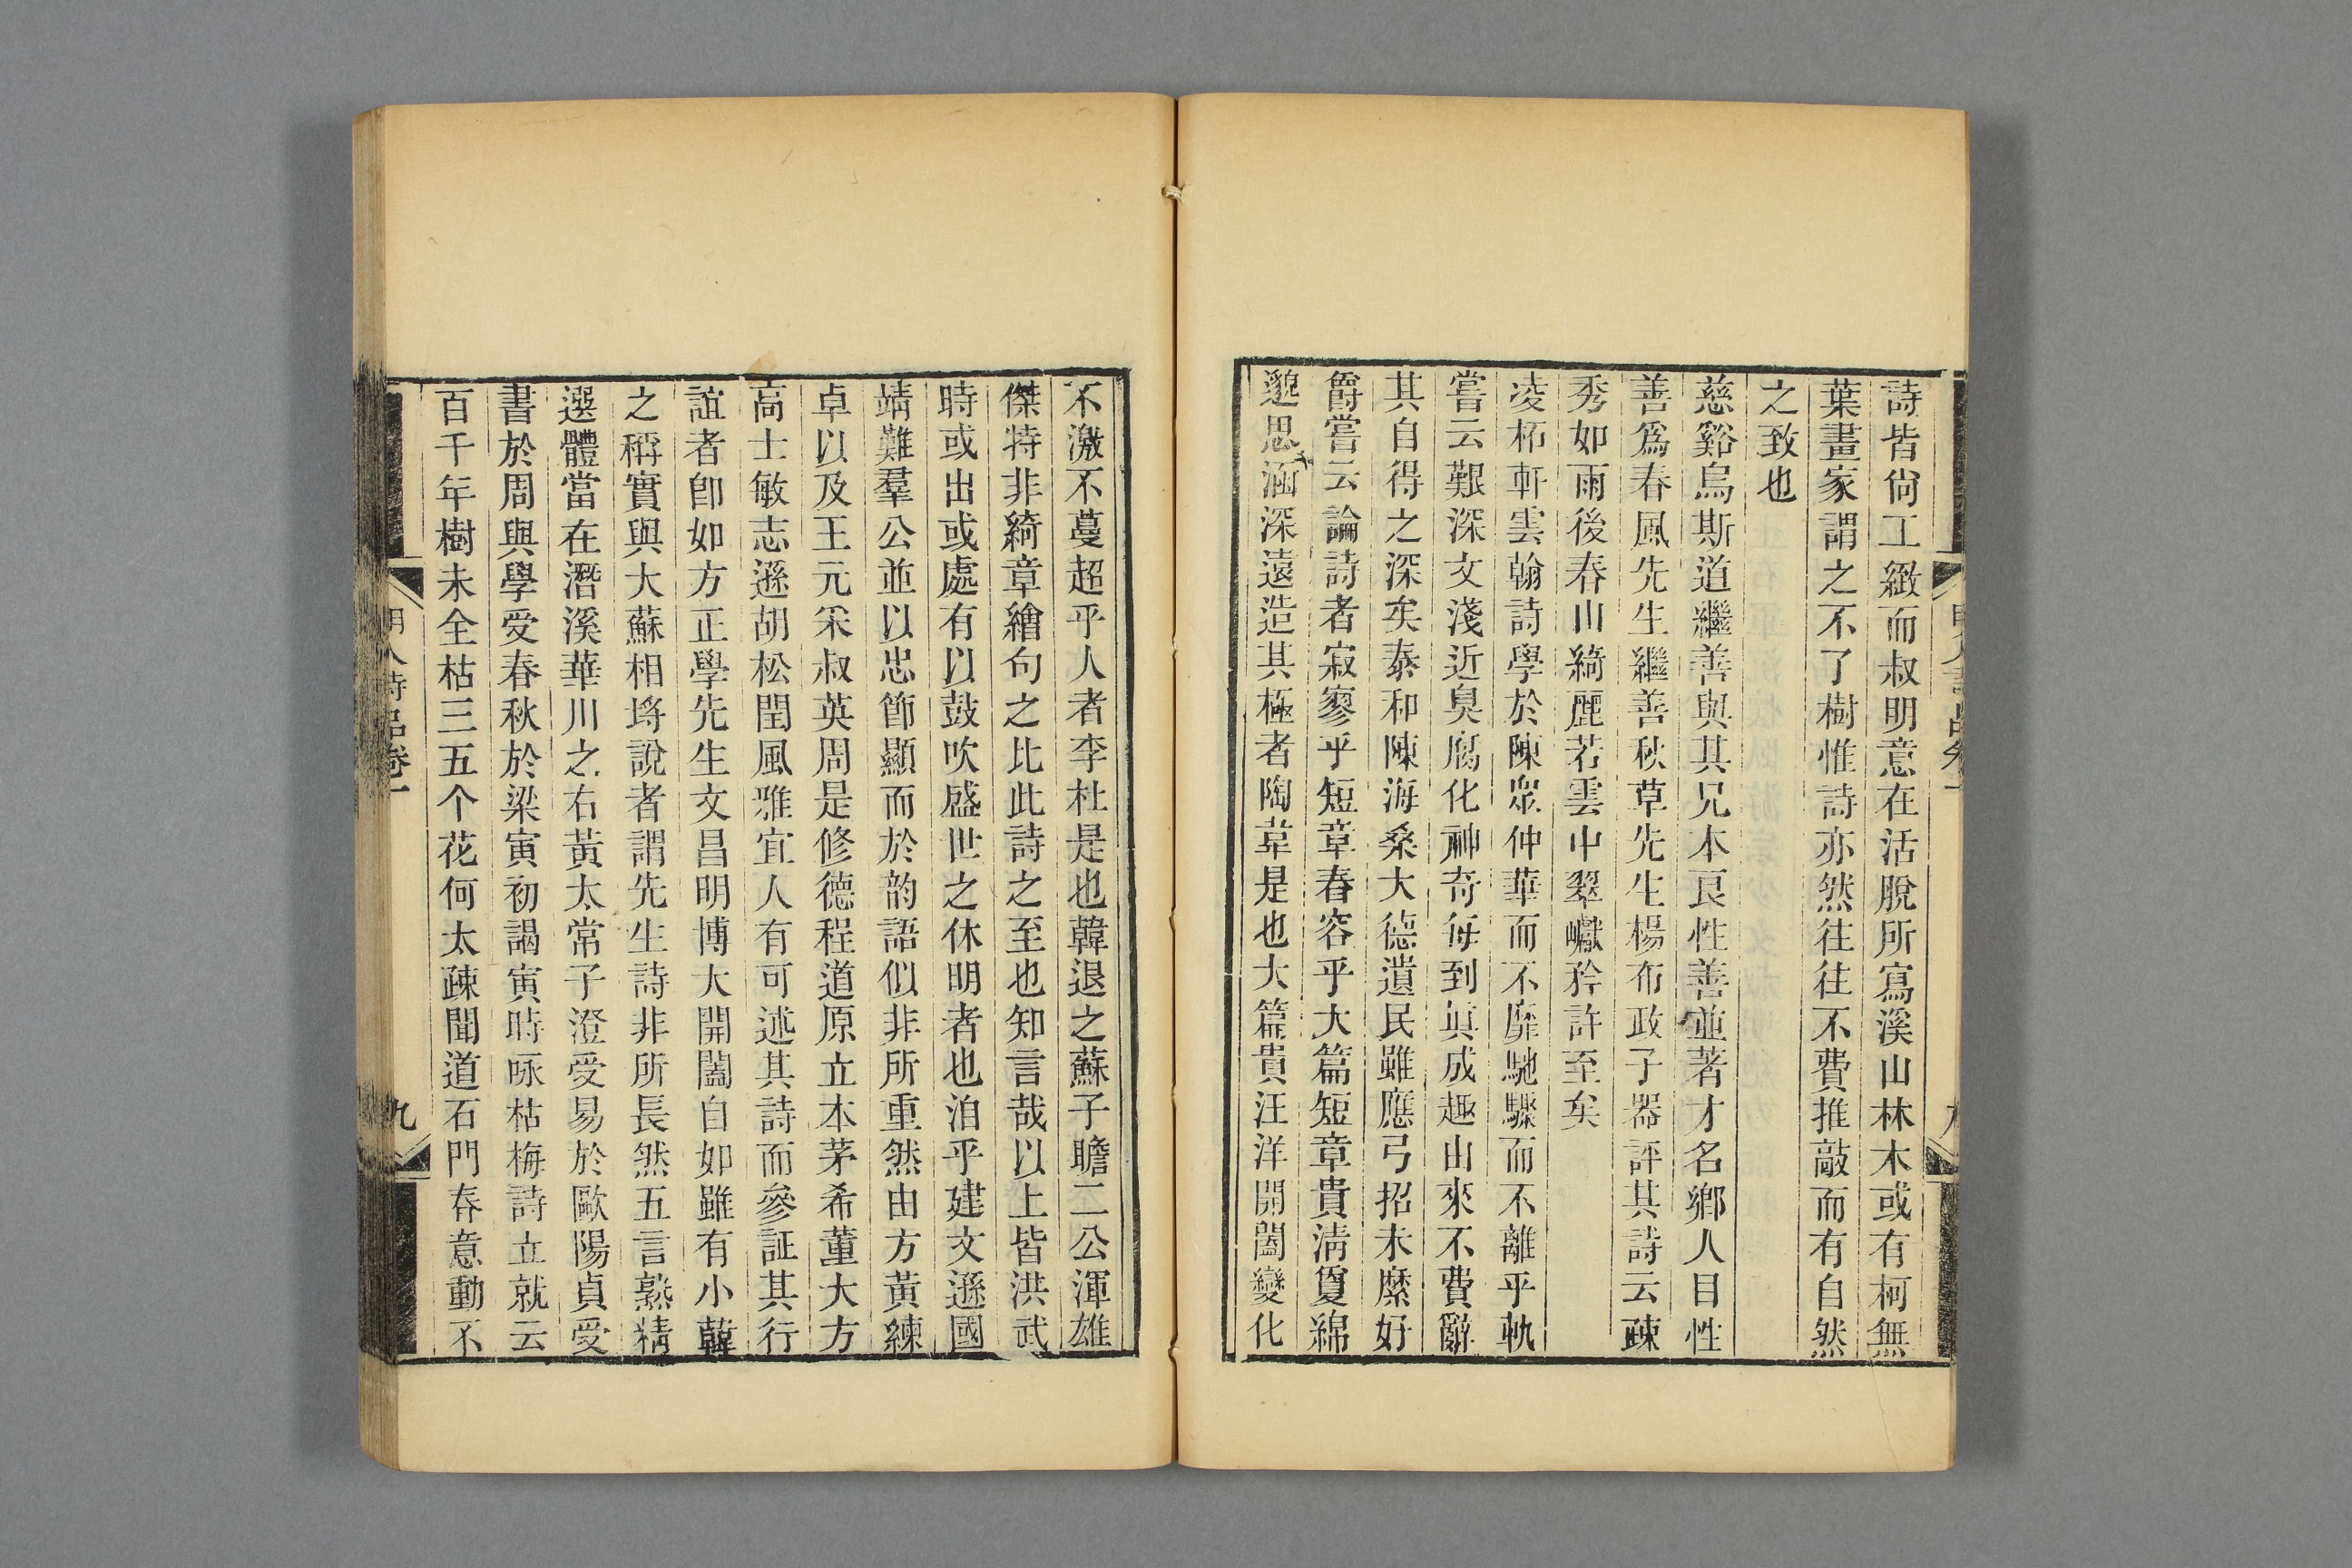 詩皆尙工緻而叔明意在活脫所寫溪山林木或有柯無
葉畫家謂之不了樹惟詩亦然往往不費推敲而有自然
之致也
慈谿烏斯道繼善與其兄本良性善並著才名鄉人目性
善爲春風先生繼善秋草先生楊布政子器評其詩云疎
秀如雨後春山綺麗若雲中翠巘矜許至矣
凌柘軒雲翰詩學於陳眾仲華而不靡馳驟而不離乎軌
嘗云艱深文淺近臭腐化神奇每到眞成趣由來不費辭
其自得之深矣泰和陳海桑大德遺民雖應弓招未縻好
爵嘗云論詩者寂寥乎短章舂容乎大篇短章貴淸敻綿
邈思涵深遠造其極者陶韋是也大篇貴汪洋開闔變化
不激不蔓超乎人者李杜是也韓退之蘇子瞻二公渾雄
傑特非綺章繪句之比此詩之至也知言哉以上皆洪武
時或出或處有以鼓吹盛世之休明者也洎乎建文遜國
靖難羣公並以忠節顯而於韵語似非所重然由方黃練
卓以及王元采叔英周是修德程道原立本茅希董大方
高士敏志遜胡松閏風雅宜人有可述其詩而參証其行
誼者卽如方正學先生文昌明博大開闔自如雖有小韓
之稱實與大蘇相埓說者謂先生詩非所長然五言熟精
選體當在潛溪華川之右黃太常子澄受易於歐陽貞受
書於周與學受春秋於梁寅初謁寅時咏枯梅詩立就云
百千年樹未全枯三五个花何太疎聞道石門春意動不
明人詩品卷一
九